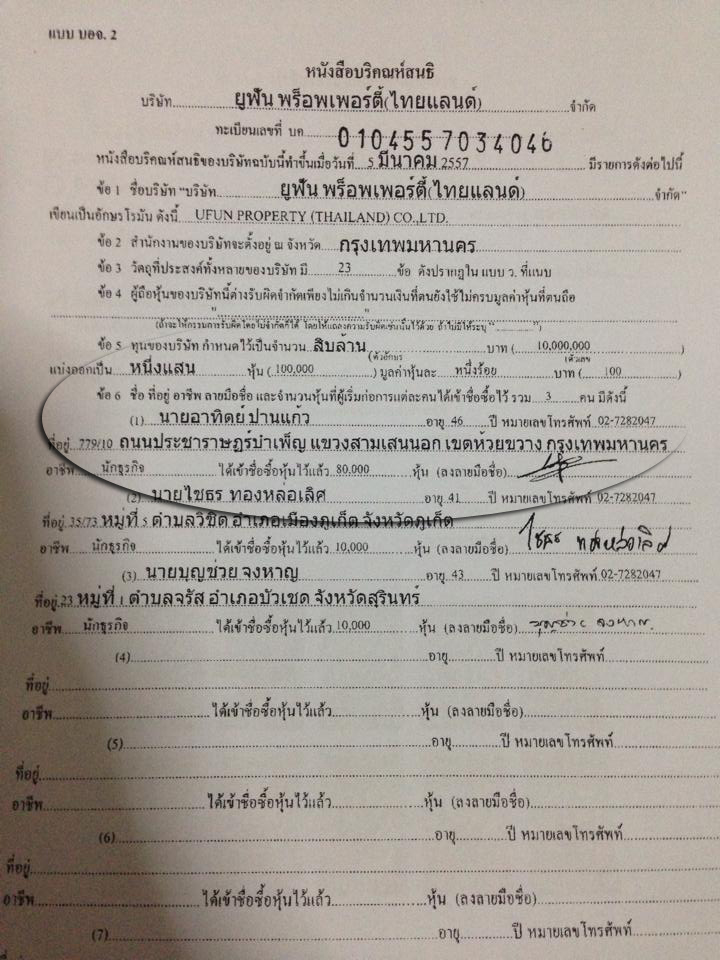 แบบ บอจ. 2
หนังสือบริคณห์สนธิ
บริษัท......ยูฟัน พร็อพเพอร์ตี้(ไทยแลนด์)......จำกัด
ทะเบียนเลขที่ บค......0104557034046
หนังสือบริคณห์สนธิของบริษัทฉบับนี้ทำขึ้นเมื่อวันที่ 5 มีนาคม 2557 มีรายการดังต่อไปนี้
ข้อ 1 ชื่อบริษัท "บริษัท......ยูฟัน พร็อพเพอร์ตี้(ไทยแลนด์)......จำกัด"
เขียนเป็นอักษรโรมัน ดังนี้ UFUN PROPERTY (THAILAND) CO.,LTD.
ข้อ 2 สำนักงานของบริษัทจะตั้งอยู่ ณ จังหวัด กรุงเทพมหานคร
ข้อ 3 วัตถุที่ประสงค์ทั้งหลายของบริษัท มี 23 ข้อ ดังปรากฏใน แบบ ว. ที่แนบ
ข้อ 4 ผู้ถือหุ้นของบริษัทนี้ต่างรับผิดจำกัดเพียงไม่เกินจำนวนเงินที่ตนยังใช้ไม่ครบมูลค่าหุ้นที่ตนถือ
"......"
(ถ้าจะให้กรรมการรับผิดโดยไม่จำกัดก็ได้ โดยให้แถลงความรับผิดเช่นนั้นไว้ด้วย ถ้าไม่มีให้ระบุ "......")
ข้อ 5 ทุนของบริษัท กำหนดไว้เป็นจำนวน สิบล้าน (ตัวอักษร) บาท ( 10,000,000 ) (ตัวเลข)
แบ่งออกเป็น หนึ่งแสน หุ้น ( 100,000 ) มูลค่าหุ้นละ หนึ่งร้อย บาท ( 100 )
ข้อ 6 ชื่อ ที่อยู่ อาชีพ ลายมือชื่อ และจำนวนหุ้นที่ผู้เริ่มก่อการแต่ละคนได้เข้าชื่อซื้อไว้ รวม 3 คน มีดังนี้
(1) นายอาทิตย์ ปานแก้ว อายุ 46 ปี หมายเลขโทรศัพท์ 02-7282047
ที่อยู่ 779/10 ถนนประชาราษฎร์บำเพ็ญ แขวงสามเสนนอก เขตห้วยขวาง กรุงเทพมหานคร
อาชีพ นักธุรกิจ ได้เข้าชื่อซื้อหุ้นไว้แล้ว 80,000 หุ้น (ลงลายมือชื่อ)
(2) นายไชธร ทองหล่อเลิศ อายุ 41 ปี หมายเลขโทรศัพท์ 02-7282047
ที่อยู่ 35/73 หมู่ที่ 5 ตำบลวิชิต อำเภอเมืองภูเก็ต จังหวัดภูเก็ต
อาชีพ นักธุรกิจ ได้เข้าชื่อซื้อหุ้นไว้แล้ว 10,000 หุ้น (ลงลายมือชื่อ) ไชธร ทองหล่อเลิศ
(3) นายบุญช่วย จงหาญ อายุ 43 ปี หมายเลขโทรศัพท์ 02-7282047
ที่อยู่ 23 หมู่ที่ 1 ตำบลจรัส อำเภอบัวเชด จังหวัดสุรินทร์
อาชีพ นักธุรกิจ ได้เข้าชื่อซื้อหุ้นไว้แล้ว 10,000 หุ้น (ลงลายมือชื่อ) บุญช่วย จงหาญ
(4)......อายุ......ปี หมายเลขโทรศัพท์......
ที่อยู่......
อาชีพ......ได้เข้าชื่อซื้อหุ้นไว้แล้ว......หุ้น (ลงลายมือชื่อ)......
(5)......อายุ......ปี หมายเลขโทรศัพท์......
ที่อยู่......
อาชีพ......ได้เข้าชื่อซื้อหุ้นไว้แล้ว......หุ้น (ลงลายมือชื่อ)......
(6)......อายุ......ปี หมายเลขโทรศัพท์......
ที่อยู่......
อาชีพ......ได้เข้าชื่อซื้อหุ้นไว้แล้ว......หุ้น (ลงลายมือชื่อ)......
(7)......อายุ......ปี หมายเลขโทรศัพท์......